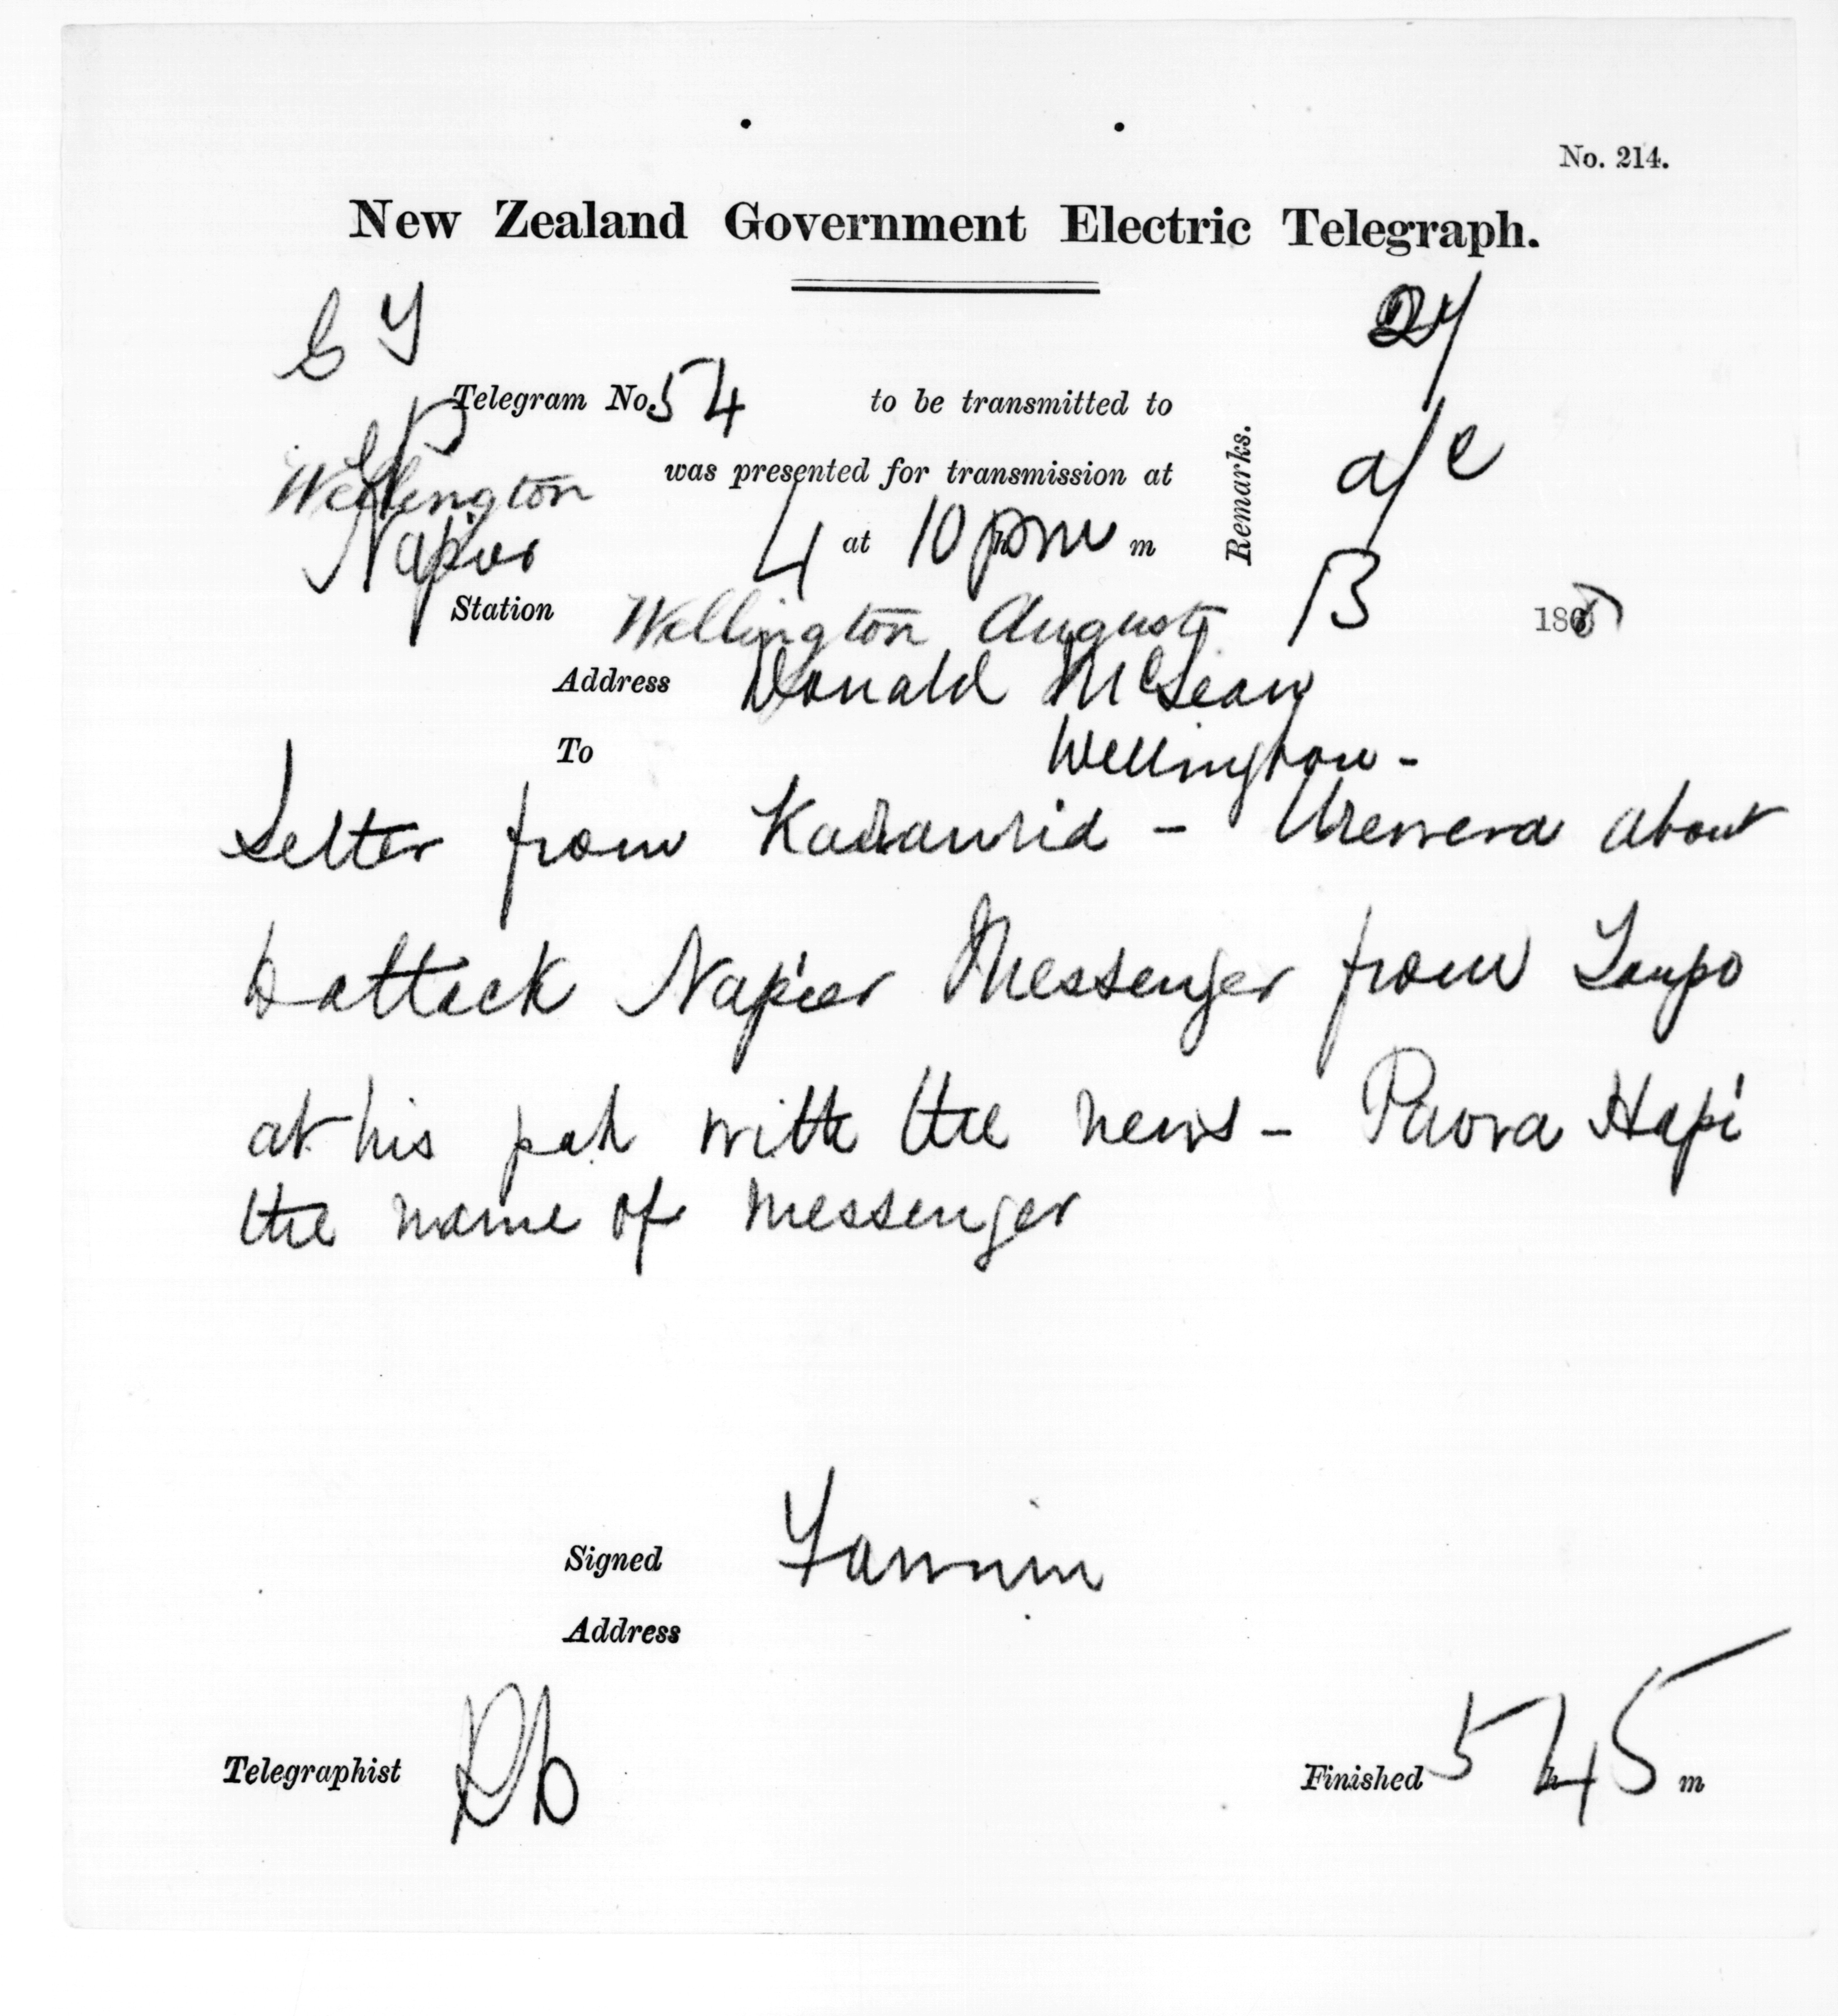 No. 214.
New Zealand Government Electric Telegraph.
Telegram No. 54 to be transmitted to
Wellington was presented for transmission at
Napier 4 at 10 pm m
Remarks. a/c
Station Wellington August 13 186
Address Donald McLean
To Wellington -
Letter from - Urewera about
to attack Napier Messenger from Taupo
at his pah with the news - Paora Hapi
the name of messenger
Signed Fannin
Address
Telegraphist
Finished 5 h 45 m